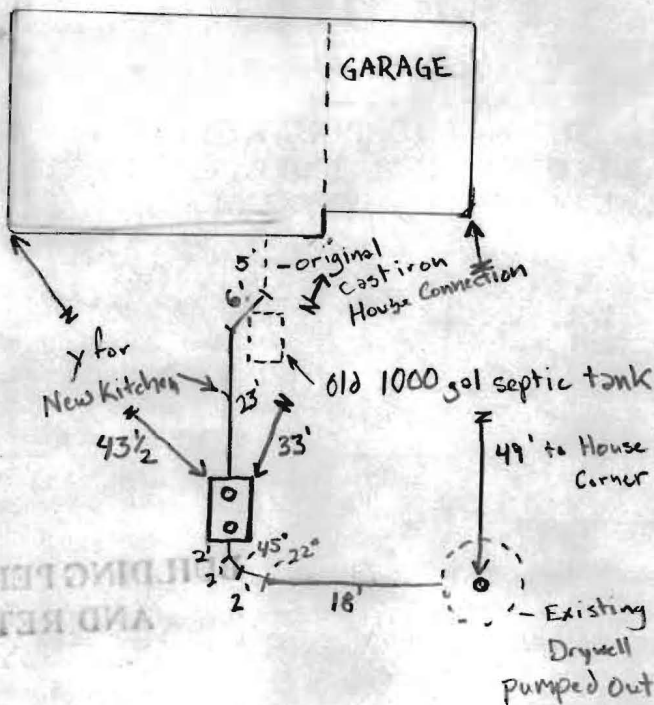 GARAGE
5'
original
cast iron
House Connection
6'
y for
New Kitchen
23'
old 1000 gal septic tank
43½
33'
49' to House
Corner
2'
2'
2'
45°
22°
18'
Existing
Drywell
pumped out